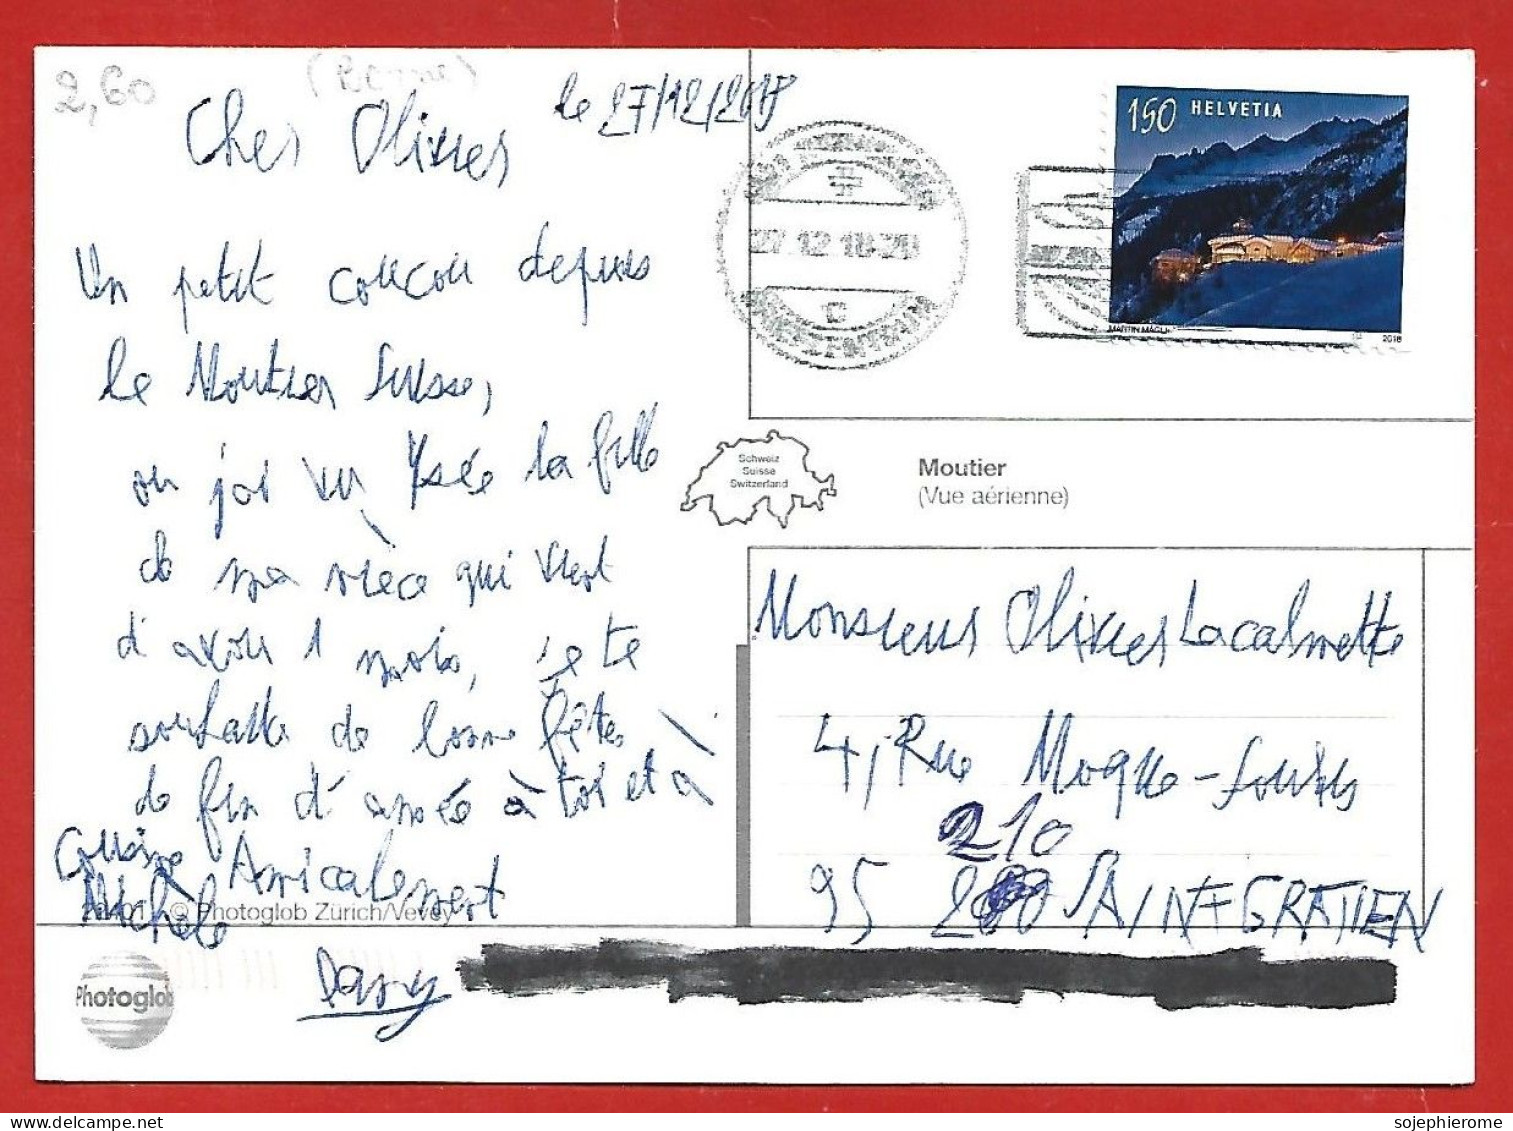 2,60
(Berne)
le 27/12/2018
Cher Olivier
Un petit coucou depuis
le Moutier Suisse,
ou j'ai vu Ysée la fille
de ma nièce qui vient
d'avoir 1 mois, je te
souhaite de bonne fêtes
de fin d'année à toi et à
Cousine Amicalement
Michèle
Dany
26401 © Photoglob Zürich/Vevey
Photoglob
27.12.18-20
BRIEFZENTRUM
150 HELVETIA
MARTIN MÄGLI 2018
Schweiz
Suisse
Switzerland
Moutier
(Vue aérienne)
Monsieur Olivier Lacalmette
4, Rue Moque-Souris
210
95 SAINT GRATIEN
sojephierome